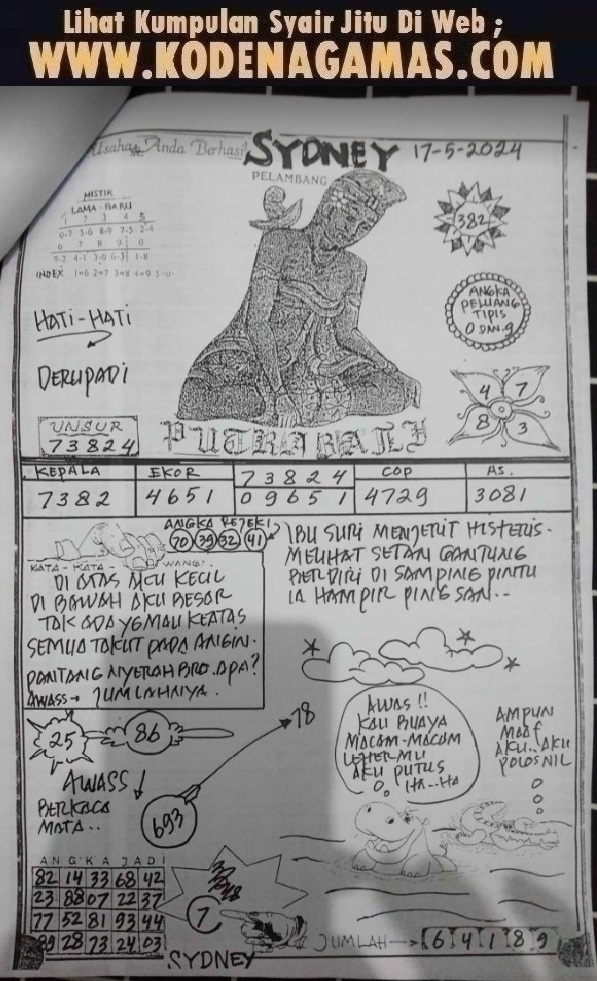 Lihat Kumpulan Syair Jitu Di Web ;
WWW.KODENAGAMAS.COM
Usaha Anda Berhasil
SYDNEY 17-5-2024
PELAMBANG
MISTIK
LAMA - BARU
1 2 3 4 5
0-7 5-6 8-9 7-3 2-4
6 7 8 9 0
9-2 4-1 3-0 6-5 1-8
INDEX 1=6 2=7 3=8 4=9 5-0
382
ANGKA
PELUANG
TIPIS
0 DAN 9
HATI-HATI
DERLIPADI
4 7
8 3
UNSUR
73824
PUTRA BALI
KEPALA EKOR 73824 COP AS.
7382 4651 09651 4729 3081
ANGKA REJEKI
70 39 32 41
KATA-KATA WANG:.
DI ATAS AKU KECIL
DI BAWAH AKU BESAR
TAK ADA YG MAU KEATAS
SEMUA TAKUT PADA ANGIN.
PANTANG NYERAH BRO. APA?
AWASS → JUMLAHNYA.
IBU SURI MENJERIT HISTERIS-
MELIHAT SETAN GANTUNG
BERDIRI DI SAMPING PINTU
IA HAMPIR PINGSAN..
25 86
78
AWASS
BERKACA
MATA..
693
AWAS !!
KAU BUAYA
MACAM-MACAM
LEHERMU
AKU PUTUS
HA..HA
AMPUN
MAAF
AKU..AKU
POLOS NIL
ANGKA JADI
82 14 33 68 42
23 88 07 22 37
77 52 81 93 44
89 28 73 24 03
7
JUMLAH → 64189
SYDNEY